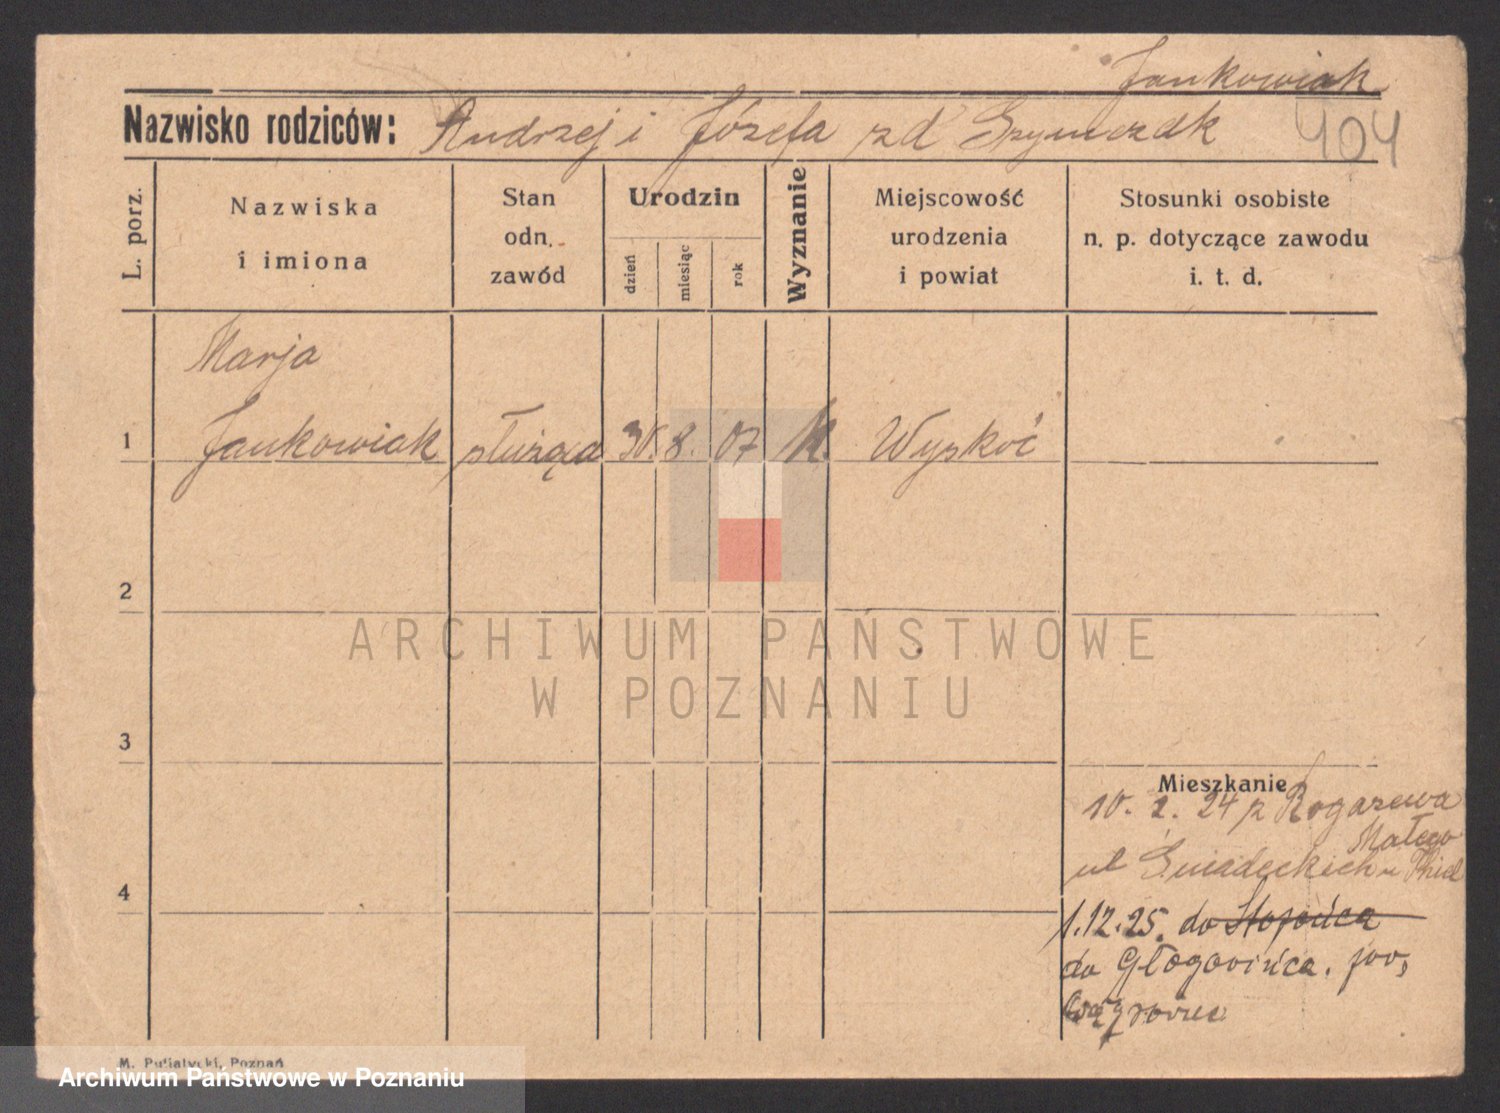 Jankowiak
Nazwisko rodziców: Andrzej i Józefa zd Szymczak
404
L. porz.
Nazwiska
i imiona
Stan
odn.
zawód
Urodzin
dzień
miesiąc
rok
Wyznanie
Miejscowość
urodzenia
i powiat
Stosunki osobiste
n. p. dotyczące zawodu
i. t. d.
Marja
1 Jankowiak służąca 30. 8. 07 k. Wyskoć
2
ARCHIWUM PAŃSTWOWE
W POZNANIU
3
Mieszkanie
10. 2. 24 z Rogazewa
Małego
ul Śniadeckich u
4
1.12.25. do
do Głogovińca. pow,
Wągrowiec
M. Putiatycki, Poznań
Archiwum Państwowe w Poznaniu